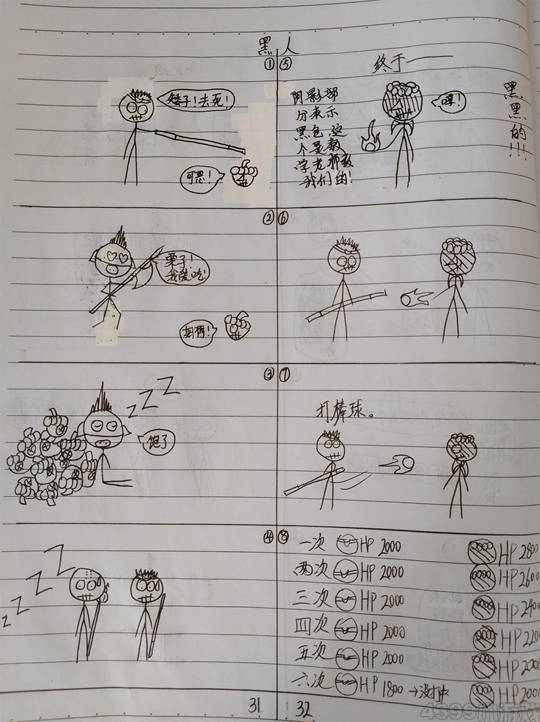 黑人
① ⑤
矮子！去死！
可恶！
终于——
阴影部
分表示
黑色，这
个是数
学老师教
我们的！
嘿！
黑黑的!!!
② ⑥
栗子！
我爱吃！
③ ⑦
ZZZ
饱了
打棒球。
④ ⑧
ZZZZ
一次 HP 2000 HP 2800
两次 HP 2000 HP 2600
三次 HP 2000 HP 2400
四次 HP 2000 HP 2200
五次 HP 2000 HP 2000
六次 HP 1800 →没打中 HP 2000
31 32